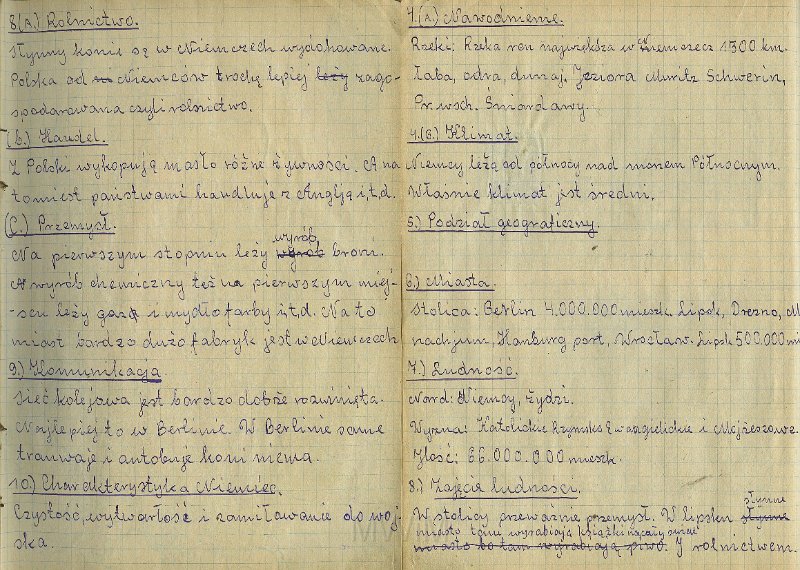 8(A.) Rolnictwo.
Słynny konie są w Niemczech wychowane.
Polska od Niemców trochę lepiej leży zago-
spodarowana czyli rolnictwo.
(b.) Handel.
Z Polski wykopują masło różne żywności. A na
tomiest państwami handluje z Anglją i,t,d.
(C.) Przemysł.
Na pierwszym stopniu leży wyrób broni.
A wyrób chemiczny też na pierwszym miej-
-scu leży gazy i mydło farby i,t,d. Na to
miast bardzo dużo fabryk jest w Niemczech
9.) Komunikacja
Sieć kolejowa jest bardzo dobże rozwinięta.
Najlepiej to w Berlinie. W Berlinie same
tranwaje i autobuje koni niema.
10.) Charakterystyka Niemiec.
Czystość, wytwartość i zamiławanie do woj
ska.
4.(A.) Nawodnienie.
Rzeki: Rzeka ren największa w Niemczecz 1300 km.
Łaba, odra, dunaj, Jeziora Muritz Schwerin,
Pr. wsch. Śniardawy.
4.(B.) Klimat.
Niemcy leżą od północy nad morzem Północnym.
Własnie klimat jest średni.
5.) Podział geograficzny.
6.) Miasta.
Stolica: Berlin 4.000.000 mieszk. Lipsk, Drezno, M
nachjum, Hanburg port, Wrocław. Lipsk 500.000 mi
7.) Ludność.
Nard: Niemcy, Żydzi.
Wyzna: Katolickie Rzymskie Ewangielickie i Mojżeszowe.
Ilość: 66.000.000 mieszk.
8.) Zajęcie ludności.
W stolicy przeważnie przemysł. W lipsku słynne
miasto tamu wyrabiają książki na cały świat
miasto bo tam wyrabiają piwo. I rolnictwem.